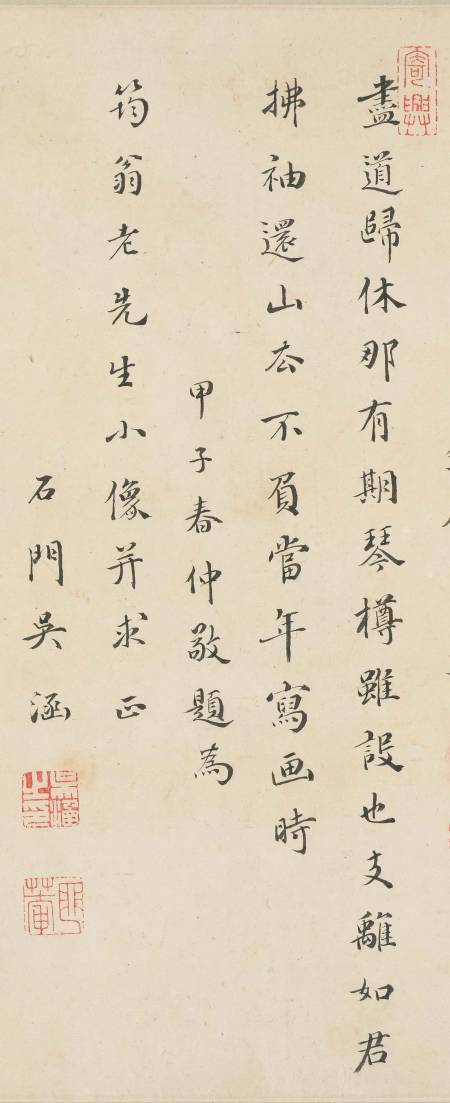 盡道歸休那有期琴樽雖設也支離如君
拂袖還山去不負當年寫画時
甲子春仲敬題為
筠翁老先生小像并求正
石門吳涵
寄興
吳涵之印